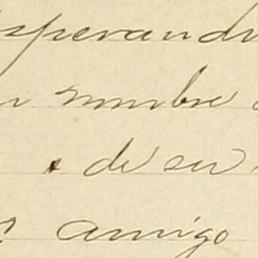 esperando
nombre
de su
amigo